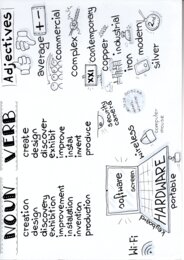 NOUN
creation
design
discovery
exhibition
improvement
instalation
invention
production
VERB
create
design
discover
exhibit
improve
instal
invent
produce
Adjectives
average
commercial
complex
XXI contemporary
copper
industrial
iron
modern
silver
security camera
wireless
computer mouse
software
screen
HARDWARE
Keyboard
portable
Wi-Fi